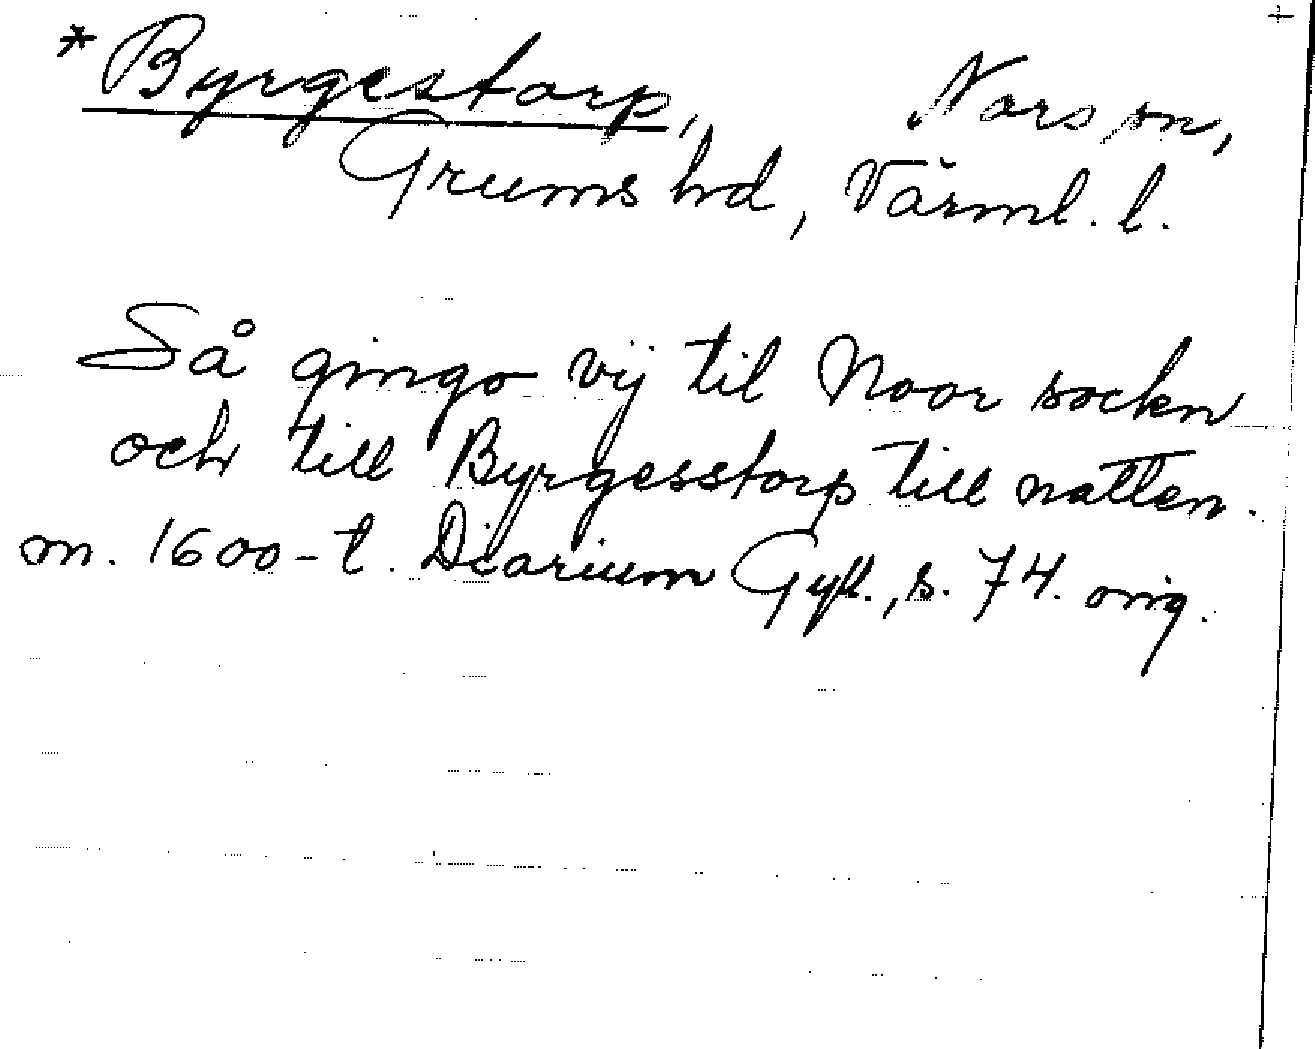 *Byrgestorp, Nors sn,
Grums hd, Värml. l.
Så gingo vij til Noor sockn
och till Byrgesstorp till natten.
m. 1600-t. Diarium Gyll., s. 74. orig.